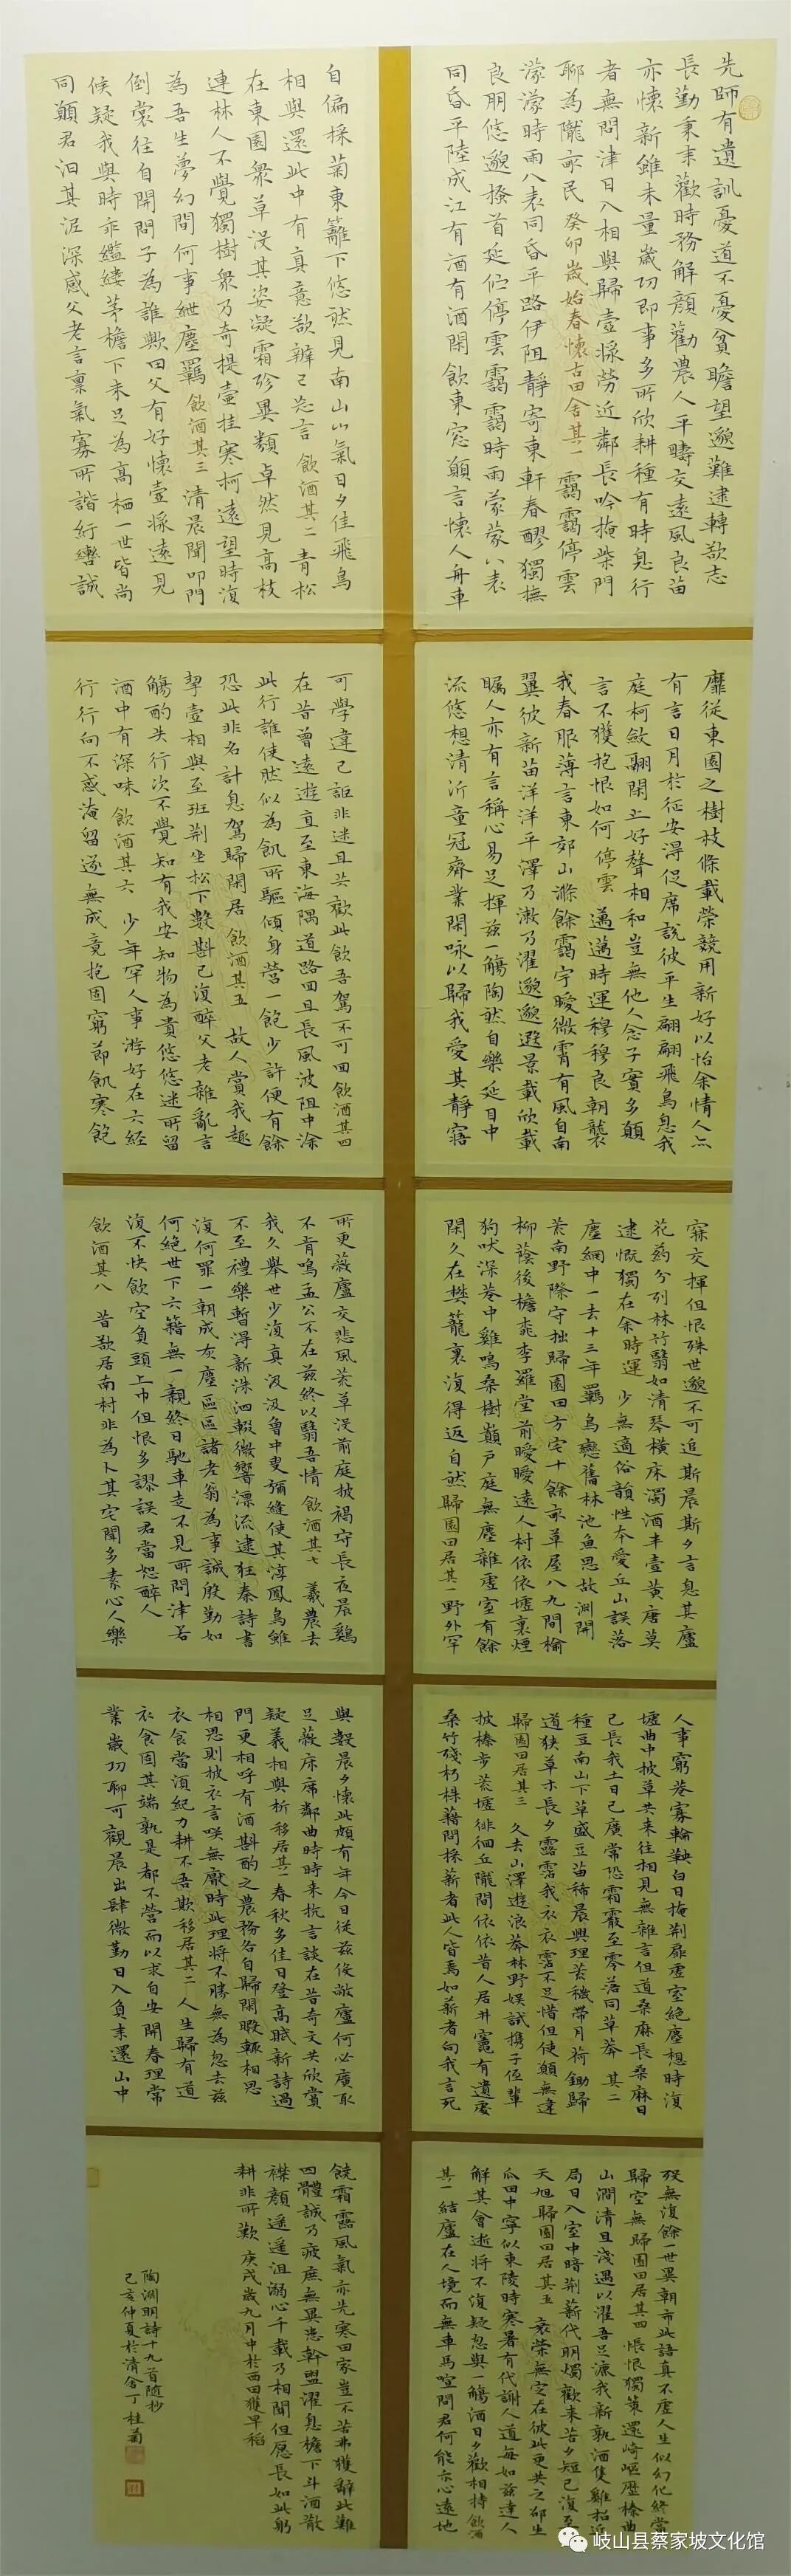 先師有遺訓憂道不憂貧瞻望邈難逮轉欲志
長勤秉耒歡時務解顏勸農人平疇交遠風良苗
亦懷新雖未量歲功即事多所欣耕種有時息行
者無問津日入相與歸壺漿勞近鄰長吟掩柴門
聊為隴畝民 癸卯歲始春懷古田舍其一 靄靄停雲
濛濛時雨八表同昏平路伊阻靜寄東軒春醪獨撫
良朋悠邈搔首延佇停雲靄靄時雨蒙蒙八表
同昏平陸成江有酒有酒閑飲東窓願言懷人舟車
靡從東園之樹枝條載榮競用新好以怡余情人亦
有言日月於征安得促席說彼平生翩翩飛鳥息我
庭柯斂翮閑止好聲相和豈無他人念子實多願
言不獲抱恨如何 停雲 邁邁時運穆穆良朝襲
我春服薄言東郊山滌餘靄宇曖微霄有風自南
翼彼新苗洋洋平澤乃漱乃濯邈邈遐景載欣載
矚人亦有言稱心易足揮茲一觴陶然自樂延目中
流悠想清沂童冠齊業閑咏以歸我愛其靜寤
寐交揮但恨殊世邈不可追斯晨斯夕言息其廬
花葯分列林竹翳如清琴橫床濁酒半壺黃唐莫
逮慨獨在余時運 少無適俗韻性本愛丘山誤落
塵網中一去十三年羈鳥戀舊林池魚思故淵開
荒南野際守拙歸園田方宅十餘畝草屋八九間榆
柳蔭後檐桃李羅堂前曖曖遠人村依依墟裏煙
狗吠深巷中雞鳴桑樹巔戶庭無塵雜虛室有餘
閑久在樊籠裏復得返自然歸園田居其一野外罕
人事窮巷寡輪鞅白日掩荆扉虛室絕塵想時復
墟曲中披草共来往相見無雜言但道桑麻長桑麻日
已長我土日已廣常恐霜霰至零落同草莽 其二
種豆南山下草盛豆苗稀晨興理荒穢帶月荷鋤歸
道狹草木長夕露霑我衣衣霑不足惜但使願無違
歸園田居其三 久去山澤遊浪莽林野娱試携子侄輩
披榛步荒墟徘徊丘隴間依依昔人居井竈有遺處
桑竹殘朽株藉問採薪者此人皆焉如薪者向我言死
殁無復餘一世異朝市此語真不虛人生似幻化終當
歸空無歸園田居其四 悵恨獨策還崎嶇歷榛曲
山澗清且淺遇以濯吾足漉我新孰酒隻雞招近
局日入室中暗荆薪代明燭歡来苦夕短已復至
天旭歸園田居其五 衰榮無定在彼此更共之邵生
瓜田中寧似東陵時寒暑有代謝人道每如茲達人
解其會逝將不復疑忽與一觴酒日夕歡相持飲酒
其一結廬在人境而無車馬喧問君何能尒心遠地
自偏採菊東籬下悠然見南山山氣日夕佳飛鳥
相與還此中有真意欲辨已忘言 飲酒其二 青松
在東園衆草沒其姿凝霜珍異類卓然見高枝
連林人不覺獨樹衆乃奇提壺挂寒柯遠望時復
為吾生夢幻間何事紲塵羈飲酒其三 清晨聞叩門
倒裳往自開問子為誰歟田父有好懷壺漿遠見
候疑我與時乖繿縷茅檐下未足為高栖一世皆尚
同願君汩其泥深感父老言禀氣寡所諧紆轡誠
可學違己詎非迷且共歡此飲吾駕不可回飲酒其四
在昔曾遠遊直至東海隅道路回且長風波阻中塗
此行誰使然似為飢所驅傾身營一飽少許便有餘
恐此非名計息駕歸閑居飲酒其五 故人賞我趣
挈壺相與至班荆坐松下數斟已復醉父老雜亂言
觴酌失行次不覺知有我安知物為貴悠悠迷所留
酒中有深味 飲酒其六 少年罕人事游好在六經
行行向不惑淹留遂無成竟抱固窮節飢寒飽
所更薇廬交悲風荒草沒前庭披褐守長夜晨鷄
不肯鳴孟公不在茲終以翳吾情 飲酒其七 羲農去
我久舉世少復真汲汲魯中叟彌縫使其淳鳳鳥雖
不至禮樂暫得新洙泗輟微響漂流逮狂秦詩書
復何罪一朝成灰塵區區諸老翁為事誠殷勤如
何絕世下六籍無一親終日馳車走不見所問津若
復不快飲空負頭上巾但恨多謬誤君當恕醉人
飲酒其八 昔欲居南村非為卜其宅聞多素心人樂
與數晨夕懷此頗有年今日從茲俊敝廬何必廣取
足蔽床席鄰曲時時来抗言談在昔奇文共欣賞
疑義相與析移居其一春秋多佳日登高賦新詩過
門更相呼有酒斟酌之農務各自歸閑暇輒相思
相思則披衣言咲無厭時此理將不勝無為忽去茲
衣食當須紀力耕不吾欺移居其二 人生歸有道
衣食固其端孰是都不營而以求自安開春理常
業歲功聊可觀晨出肆微勤日入負耒還山中
饒霜露風氣亦先寒田家豈不苦弗獲辭此難
四體誠乃疲庶無異患幹盥濯息檐下斗酒散
襟顏遥遥沮溺心千載乃相關但愿長如此躬
耕非所歎 庚戌歲九月中於西田獲早稻
陶淵明詩十九首随抄
己亥仲夏於清舍丁桂菊
岐山县蔡家坡文化馆